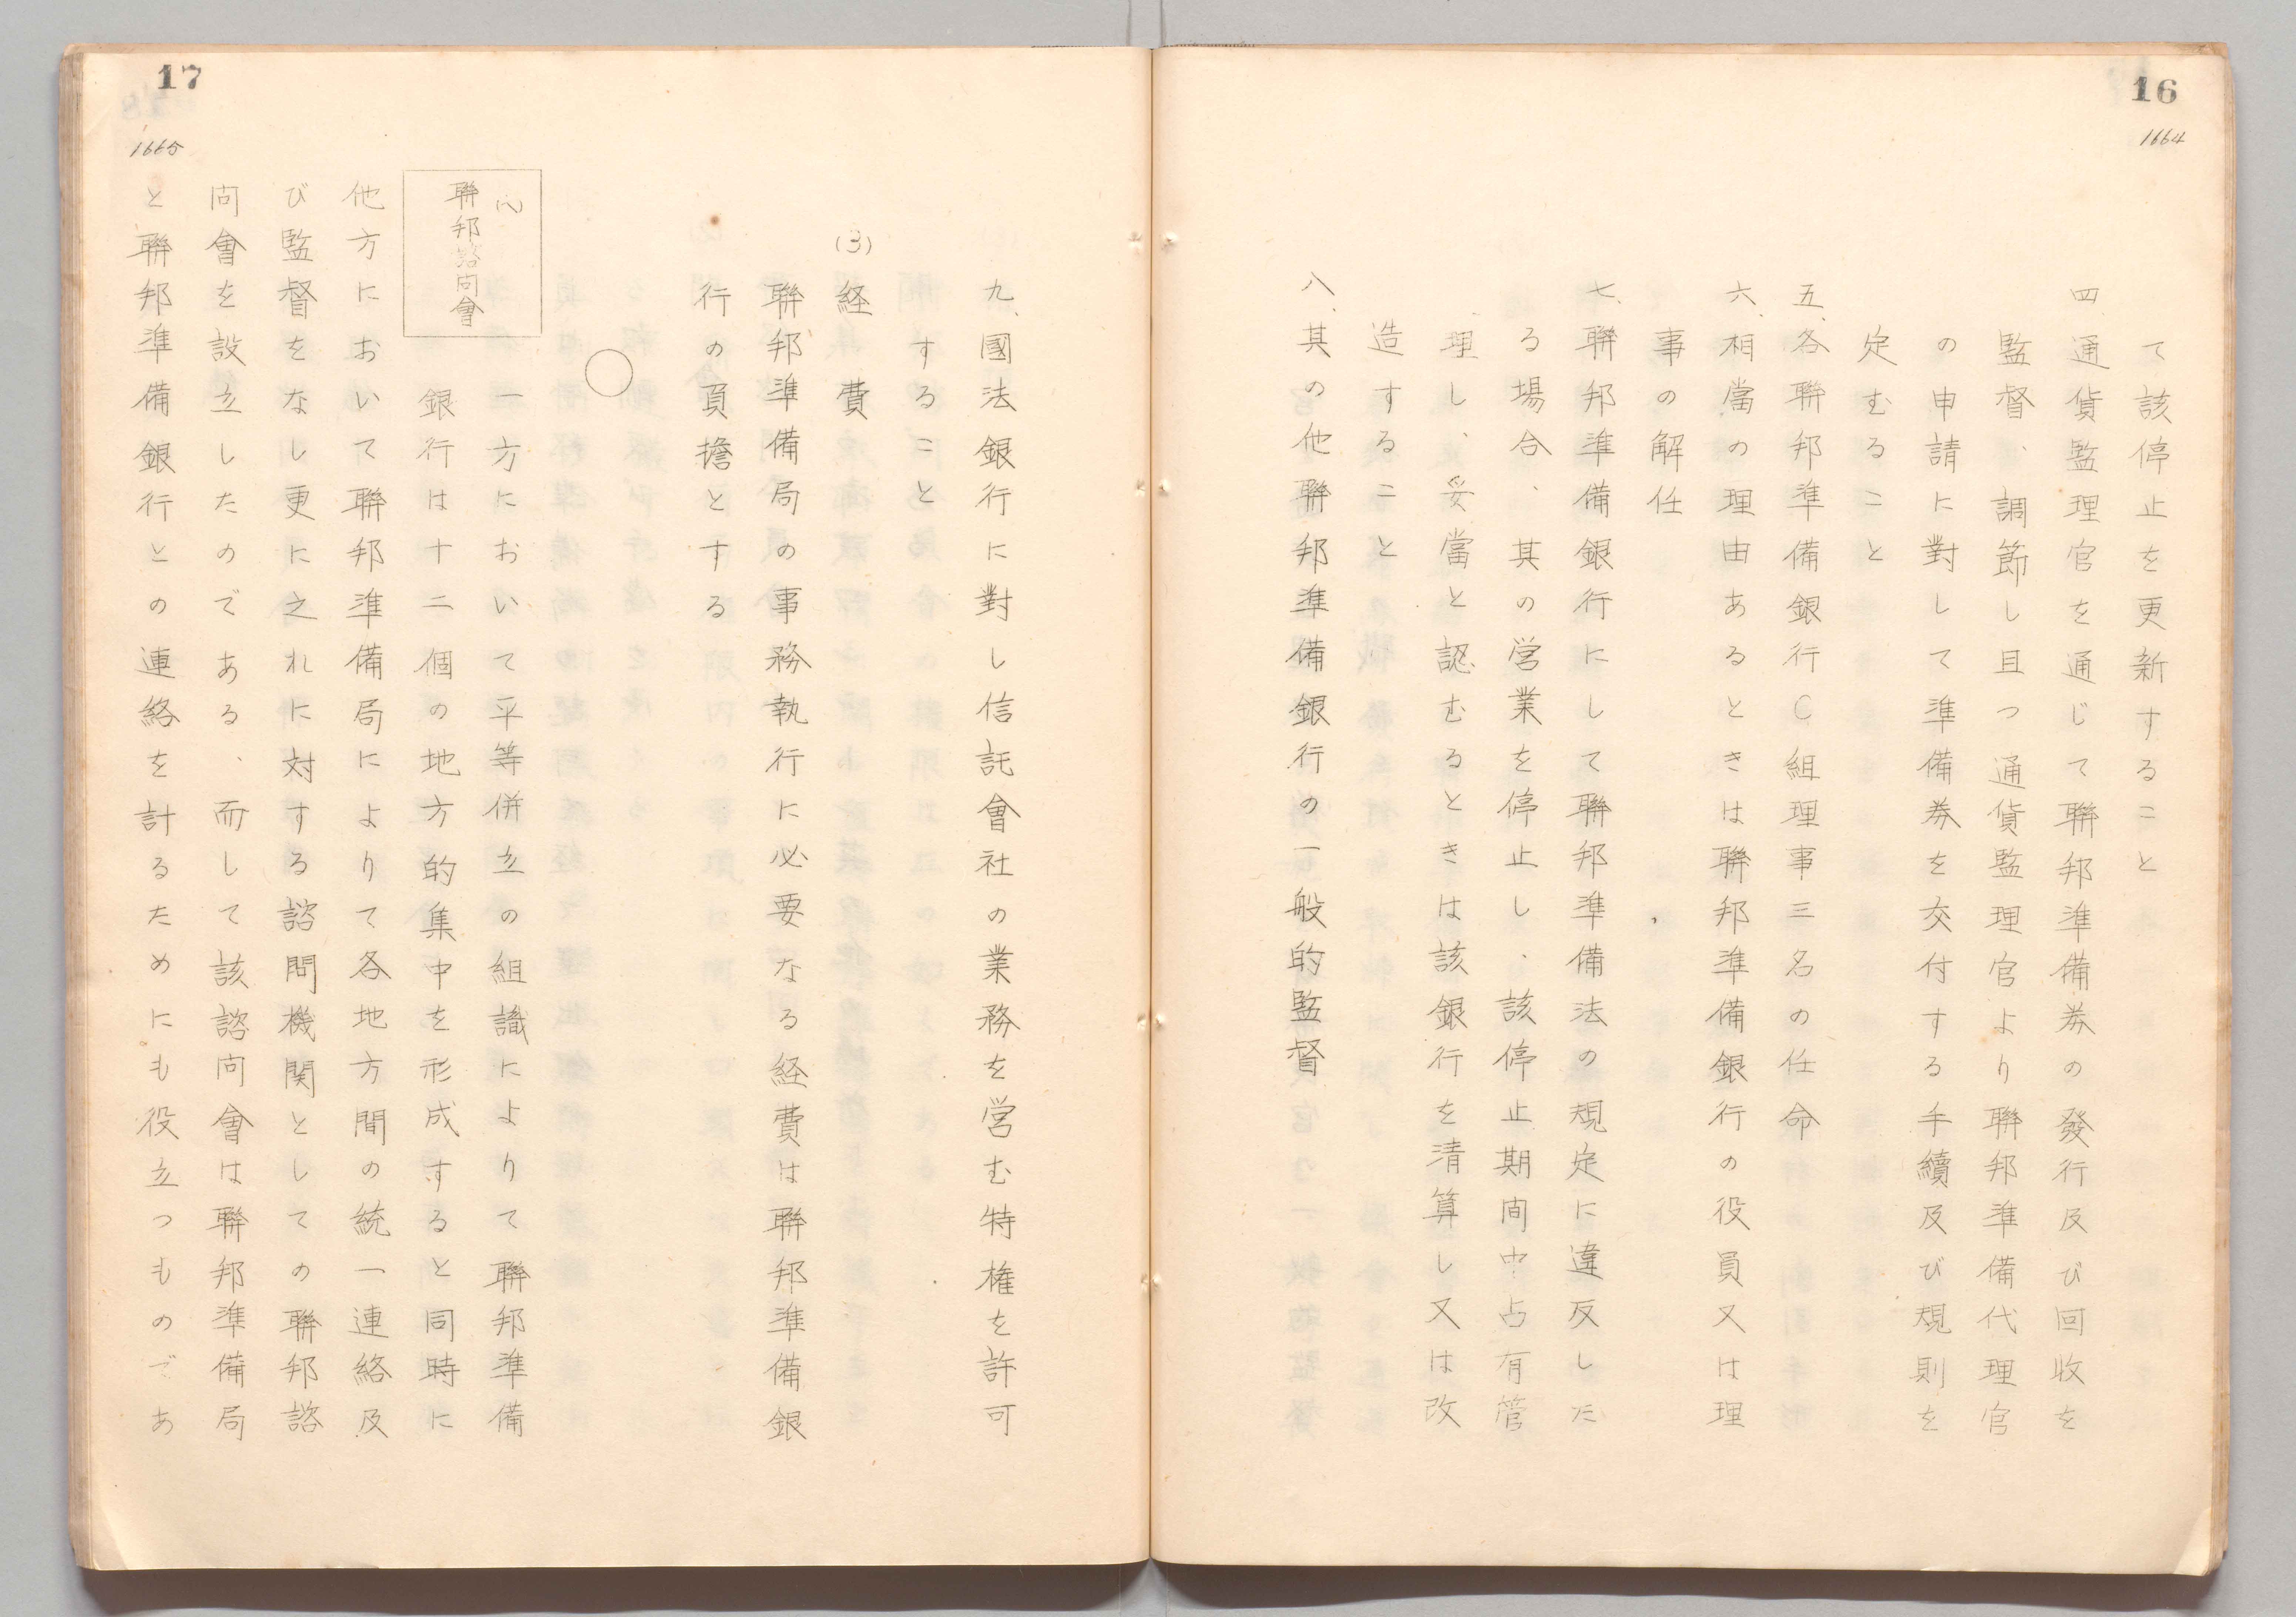 16
1664
て該停止を更新すること
四、通貨監理官を通じて聯邦準備券の發行及び回收を
監督、調節し且つ通貨監理官より聯邦準備代理官
の申請に對して準備券を交付する手續及び規則を
定むること
五、各聯邦準備銀行C組理事三名の任命
六、相當の理由あるときは聯邦準備銀行の役員又は理
事の解任
七、聯邦準備銀行にして聯邦準備法の規定に違反した
る場合、其の営業を停止し、該停止期间中占有管
理し、妥當と認むるときは該銀行を清算し又は改
造すること
八、其の他聯邦準備銀行の一般的監督
17
1665
九、國法銀行に對し信託會社の業務を営む特権を許可
すること
(3)経費
聯邦準備局の事務執行に必要なる経費は聯邦準備銀
行の負擔とする
○
(ハ)
聯邦諮向會
一方において平等併立の組識によりて聯邦準備
銀行は十二個の地方的集中を形成すると同時に
他方において聯邦準備局によりて各地方間の統一連絡及
び監督をなし更に之れに対する諮問機関としての聯邦諮
向會を設立したのである、而して該諮向會は聯邦準備局
と聯邦準備銀行との連絡を計るためにも役立つものであ